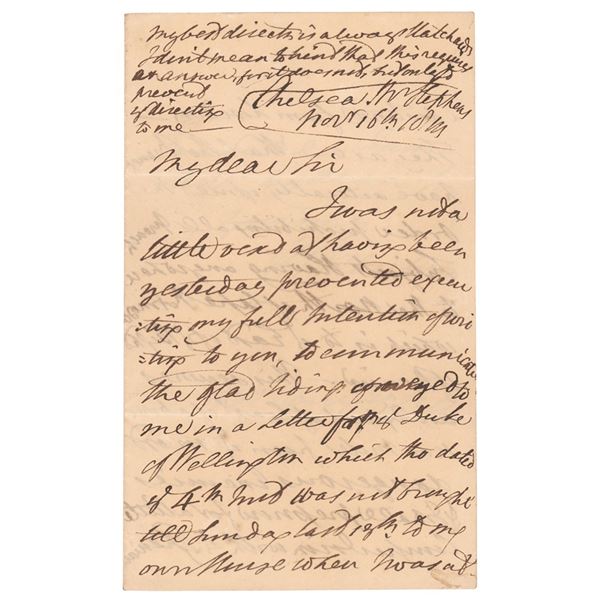 My best direct: is always Hatchard's
I don't mean to hint that this requires
an answer, for it does not, but only to
prevent
directing
to me
Chelsea Mr Stephens
Novr 16th
My dear Sir
I was not a
little vexed at having been
yesterday prevented execu
ting my full Intention of wri
=ting to you, to communicate
the glad tiding conveyed to
me in a Letter from ye Duke
of Wellington which tho dated
ye 4th Inst was not brought
till Sunday last to my
own House when I was at